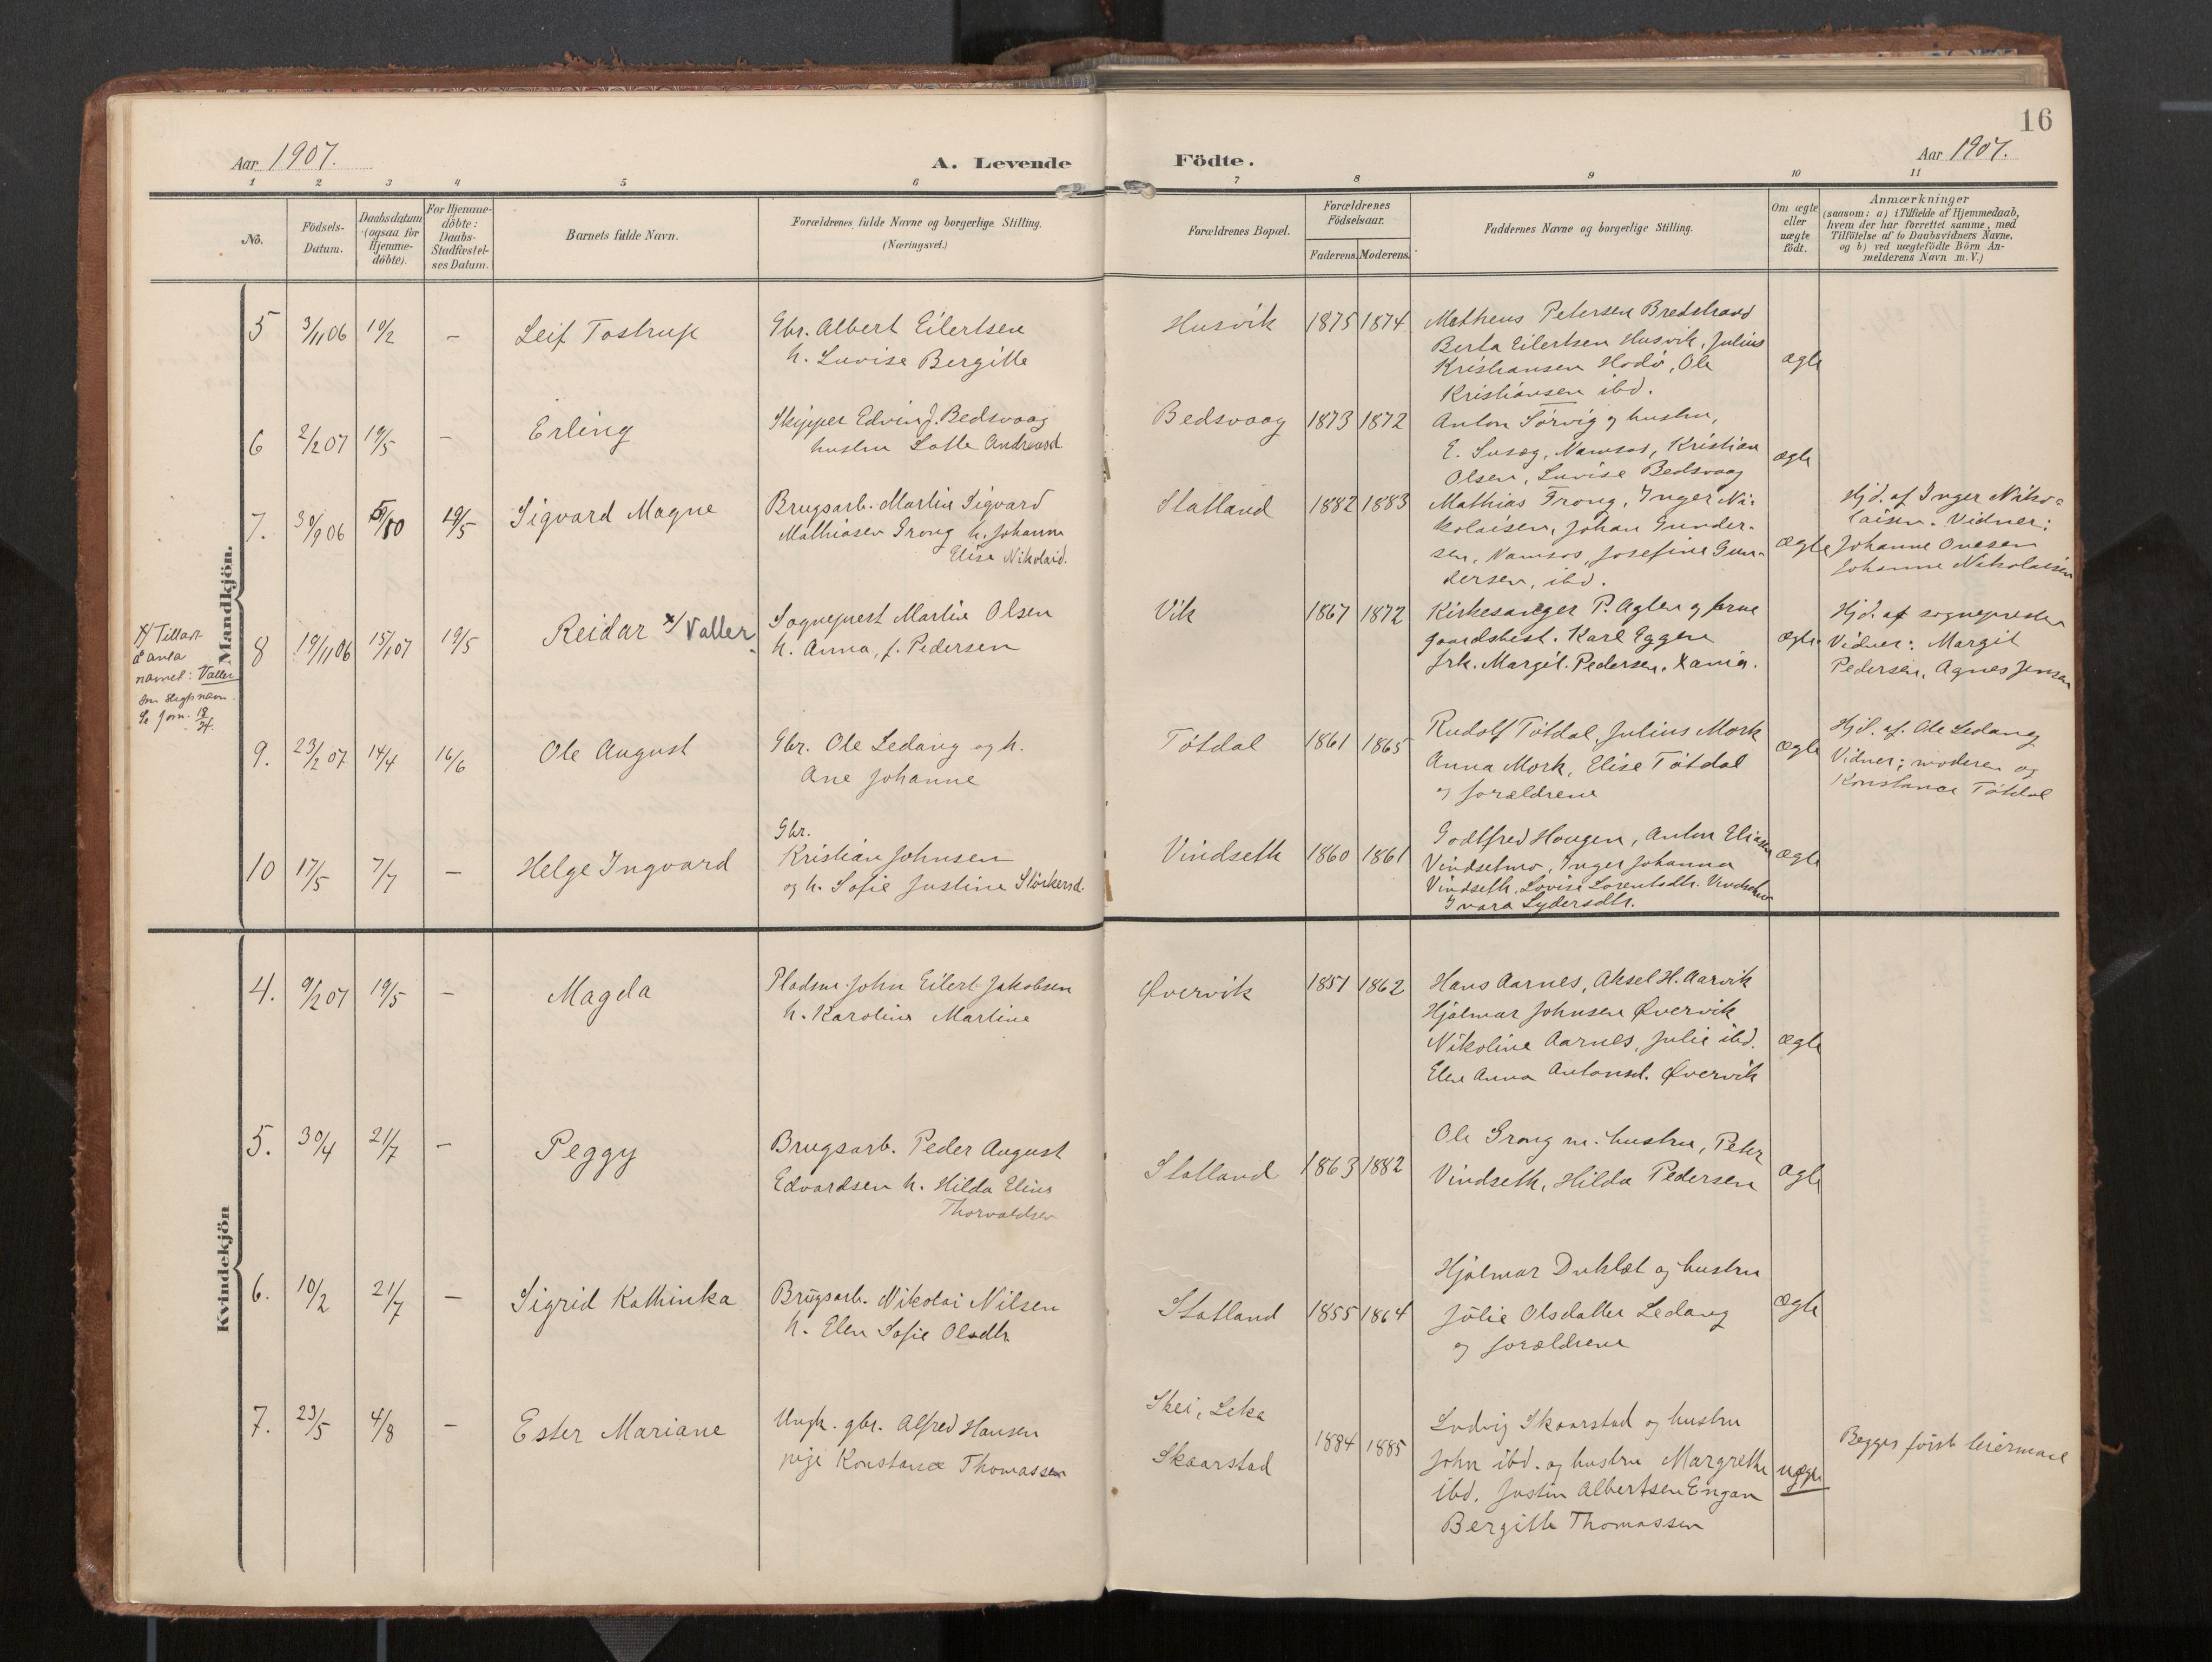 16
Aar 1907.
A. Levende
Födte.
Aar 1907.
1 2 3 4 5 6 7 8 9 10 11
No.
Födsels-Datum.
Daabsdatum (ogsaa for Hjemme-döbte).
For Hjemme-döbte: Daabs-Stadfæstel-ses Datum.
Barnets fulde Navn.
Forældrenes fulde Navne og borgerlige Stilling.
(Næringsvei.)
Forældrenes Bopæl.
Forældrenes Födselsaar.
Faderens. Moderens.
Faddernes Navne og borgerlige Stilling.
Om ægte eller uægte födt.
Anmærkninger
(saasom: a) i Tilfælde af Hjemmedaab,
hvem der har forrettet samme, med
Tilföielse af to Daabsvidners Navne,
og b) ved uægtefödte Börn An-
melderens Navn m. V.)
Mandkjön.
5 3/11 06 10/2 – Leif Tostrup
Gbr. Albert Eilertsen
h. Luvise Bergitte
Husvik 1875 1874
Matheus Petersen Bredstrand
Berta Eilertsen Husvik, Julius
Kristiansen Hodö, Ole
Kristiansen ibd.
ægte
6 2/2 07 19/5 – Erling
Skipper Edvin J. Bedsvaag
hustru Lotte Andreasd.
Bedsvaag 1873 1872
Anton Sörvig og hustru,
E. Susæg, Namsos, Kristian
Olsen, Luvise Bedsvaag
ægte
7. 30/9 06 19/5 Sigvard Magne
Brugsarb. Martin Sigvard
Mathiasen Grong h. Johanna
Elise Nikolaid.
Statland 1882 1883
Mathias Grong, Inger Ni-
kolaisen, Johan Gunder-
sen, Namsos, Josefine Gun-
dersen, ibd.
ægte
Hjd. af Inger Niko-
laisen. Vidner:
Johanne Ovesen
Johanne Nikolaisen
8 19/11 06 15/1 07 19/5 Reidar x/ Valler
x/ Tillat
å anta
navnet: Valler
som slegtsnavn.
Sogneprest Martin Olsen
h. Anna, f. Pedersen
Vik 1867 1872
Kirkesanger P. Aglen og frue
gaardsbest. Karl Eggen
frk. Margit Pedersen, Xania.
ægte
Hjd. af sognepresten
Vidner: Margit
Pedersen, Agnes Jensen
9. 23/2 07 14/4 16/6 Ole August
Gbr. Ole Ledang og h.
Ane Johanne
Tötdal 1861 1865
Rudolf Tötdal, Julius Mork
Anna Mork, Elise Tötdal
og forældrene
ægte
Hjd. af. Ole Ledang
Vidner: moderen og
Konstance Tötdal
10 17/5 7/7 – Helge Ingvard
Gbr.
Kristian Johnsen
og h. Sofie Justine Störkersd.
Vindseth 1860 1861
Godtfred Haugen, Anton Eliasen
Vindsetmo, Inger Johanna
Vindseth, Lovise Lorentsdtr. Vindsetmo
Ivara Lydersdtr.
ægte
Kvindekjön
4. 9/2 07 19/5 – Magda
Pladsm. John Eilert Jakobsen
h. Karoline Martine
Øvervik 1851 1862
Hans Aarnes, Aksel H. Aarvik
Hjalmar Johnsen Øvervik
Nikoline Aarnes, Julie ibd.
Elen Anna Antonsd. Øvervik
ægte
5. 30/4 21/7 – Peggy
Brugsarb. Peder August
Edvardsen h. Hilda Elina
Thorvaldsen
Statland 1863 1882
Ole Grong m. hustru, Peter
Vindseth, Hilda Pedersen
ægte
6. 10/2 21/7 – Sigrid Kathinka
Brugsarb. Nikolai Nilsen
h. Elen Sofie Olsdtr
Statland 1855 1864
Hjalmar Duklæt og hustru
Julie Olsdatter Ledang
og forældrene
ægte
7. 23/5 4/8 – Ester Mariane
Ungk. gbr. Alfred Hansen
pige Konstance Thomassen
Skei, Leka
Skaarstad
1884 1885
Ludvig Skaarstad og hustru
John ibd. og hustru Margrethe
ibd. Justin Albertsen Engan
Bergitte Thomassen
uægte
Begges första leiermaal